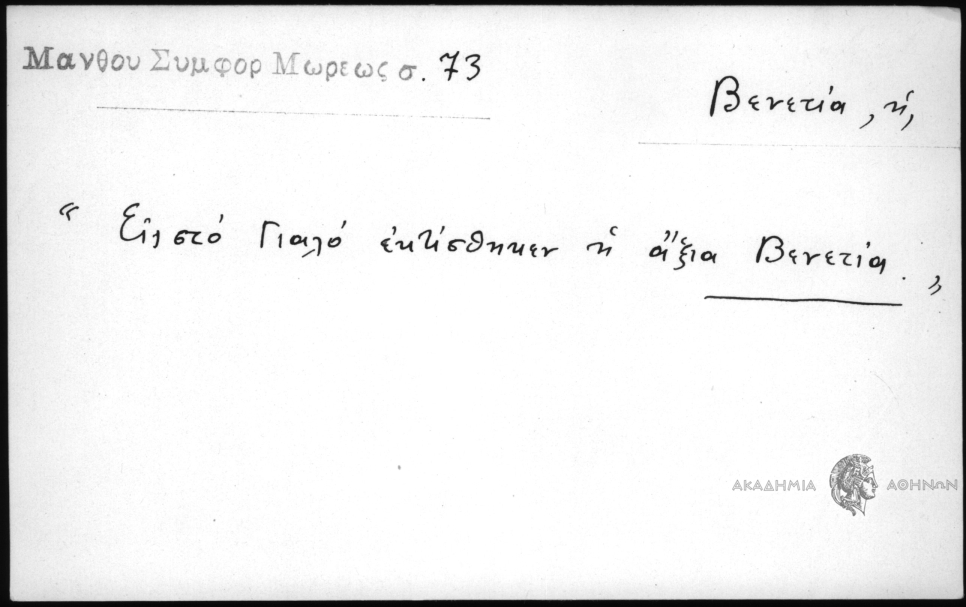 Μανθου Συμφορ Μωρεως σ. 73
Βενετία, ἡ,
“ Εἰς στό Γιαλό ἐκτίσθηκεν ἡ ἄξια Βενετία. „
ΑΚΑΔΗΜΙΑ ΑΘΗΝΩΝ